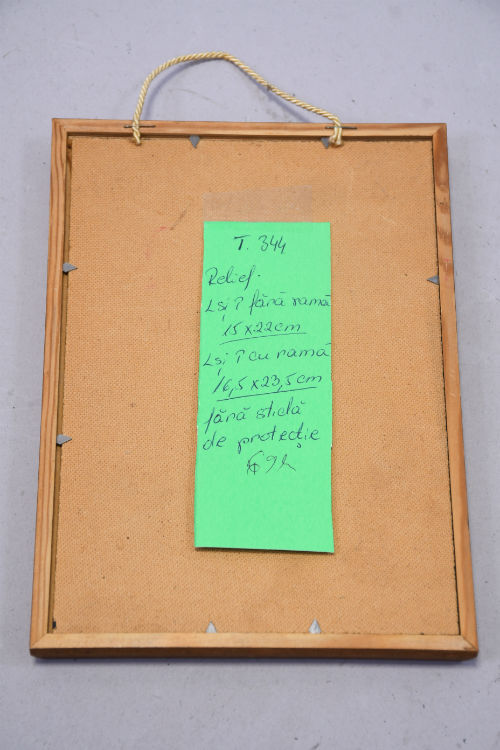 T. 344
Relief.
L și ? fără ramă
15 x 22 cm
L și ? cu ramă
16,5 x 23,5 cm
fără sticlă
de protecție